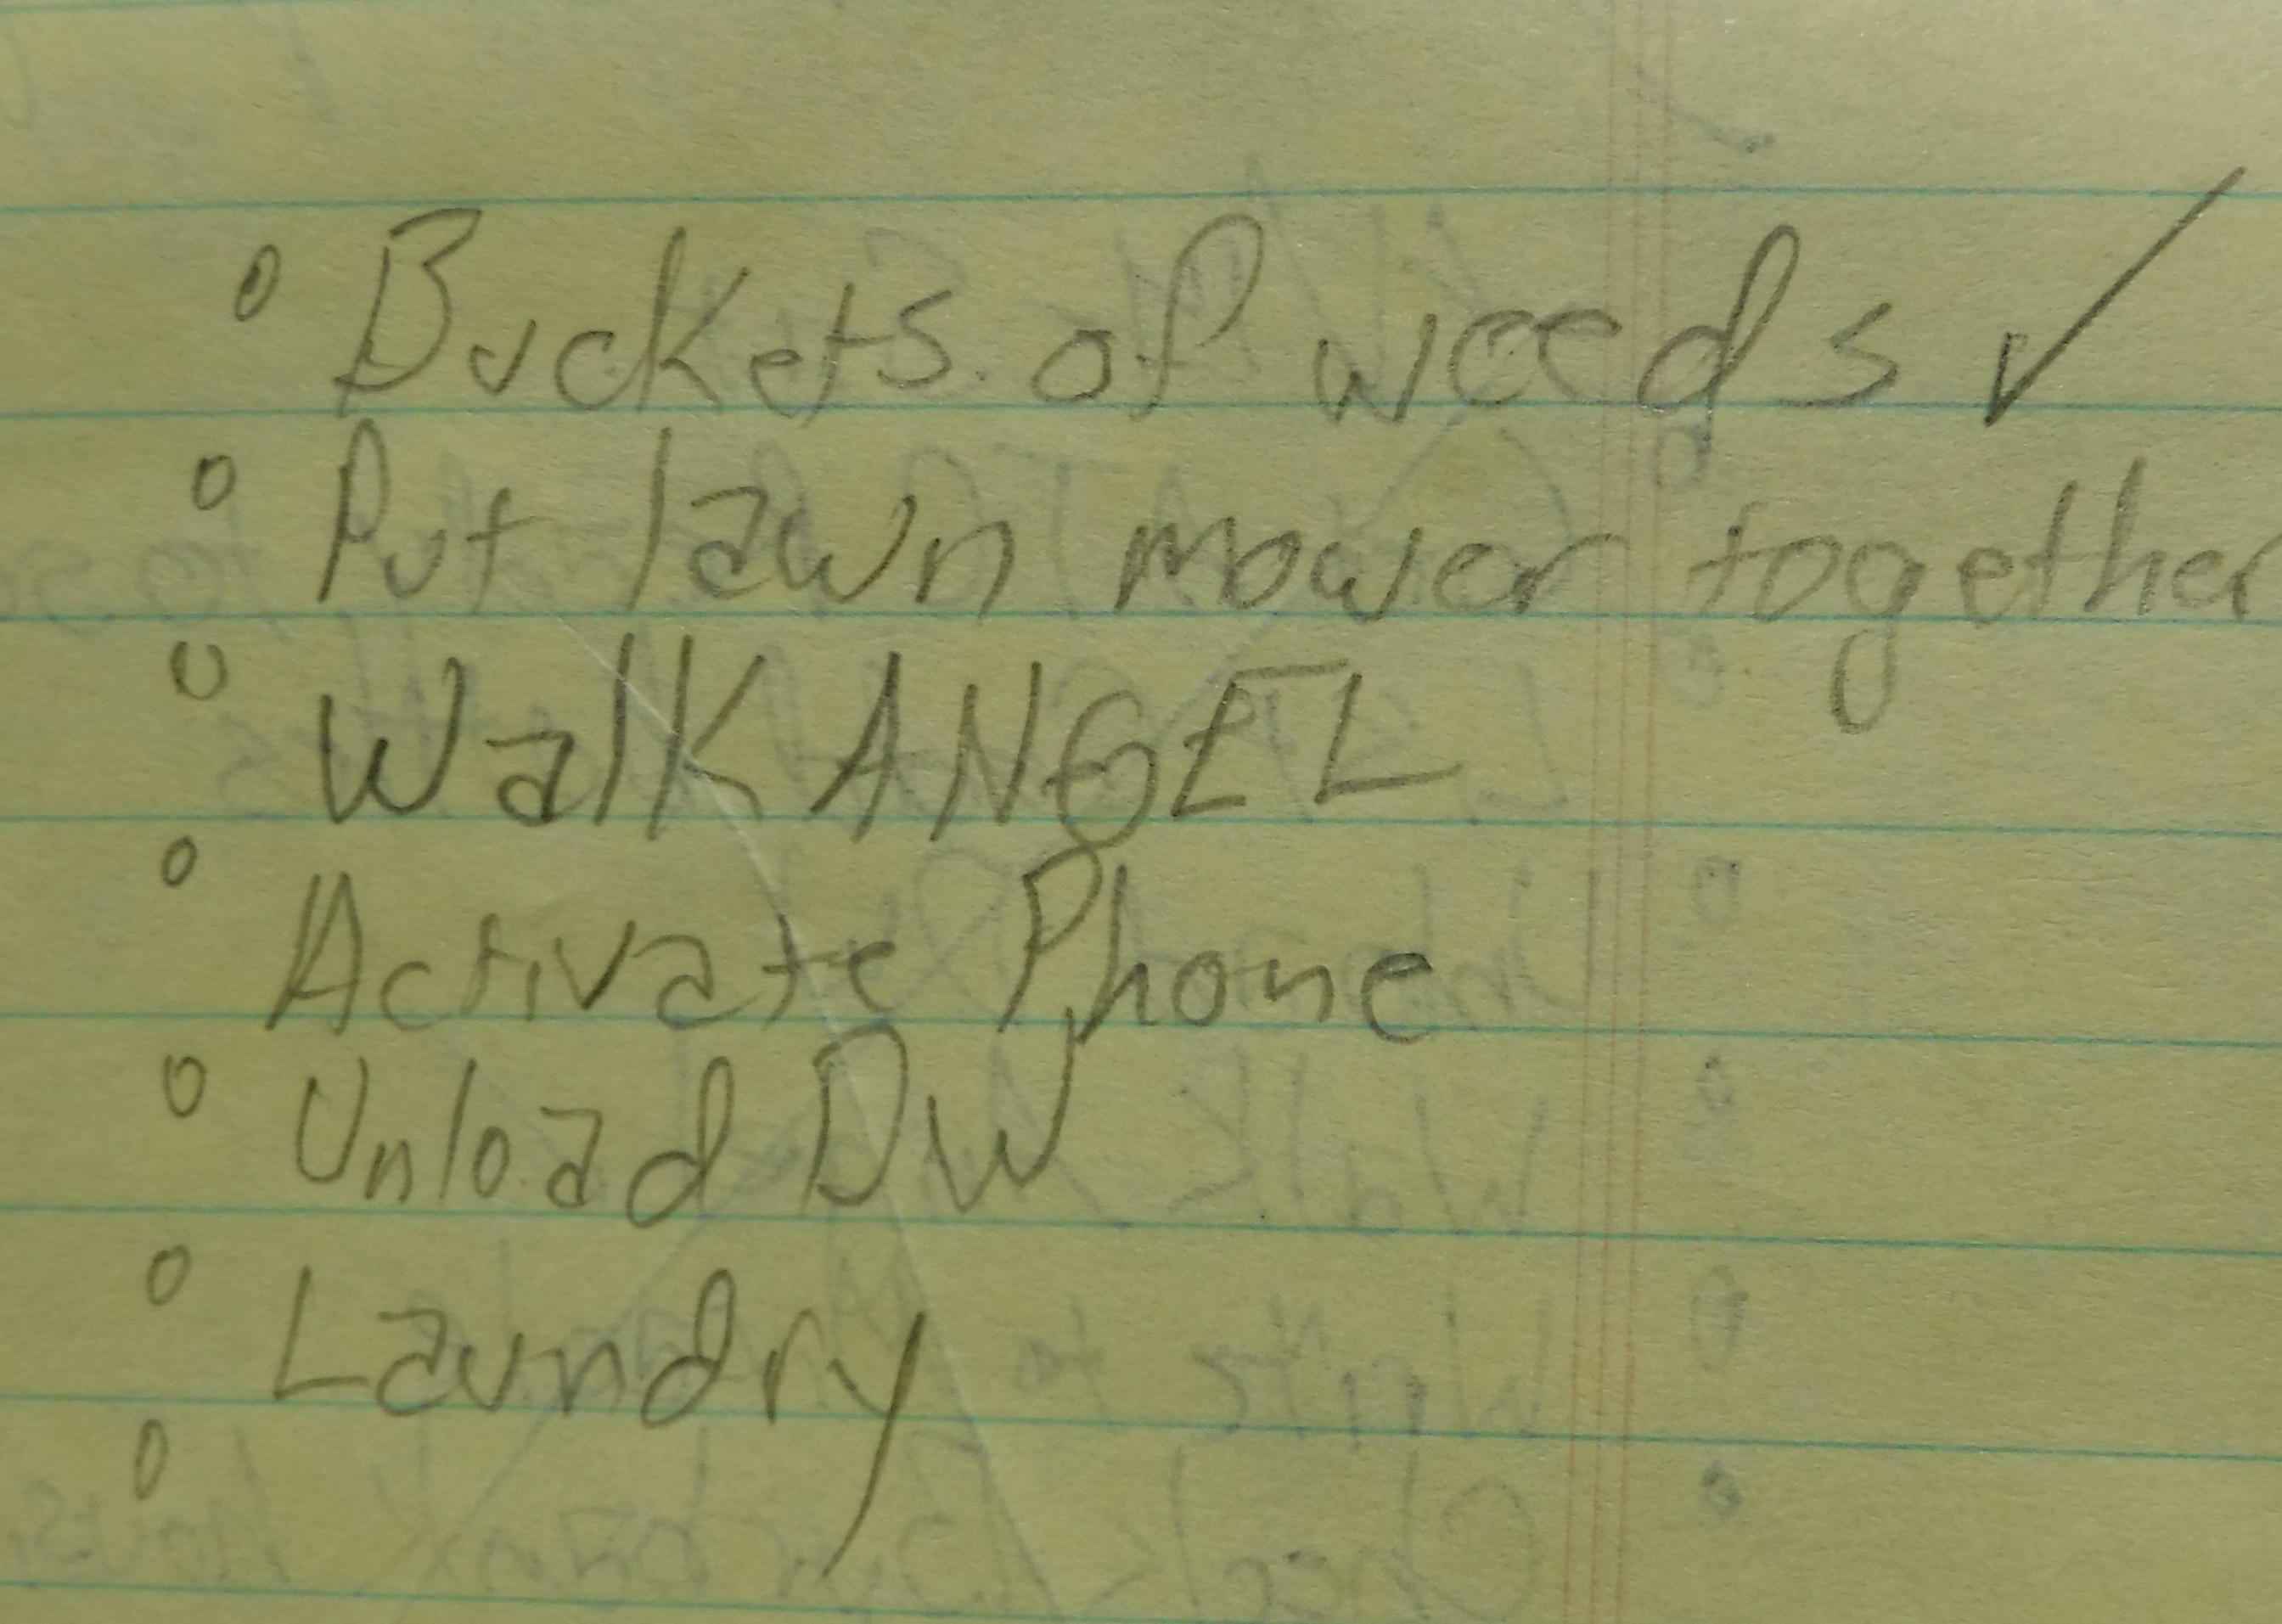 ° Buckets of weeds ✓
° Put lawn mower together
° Walk ANGEL
° Activate Phone
° Unload DW
° Laundry
°